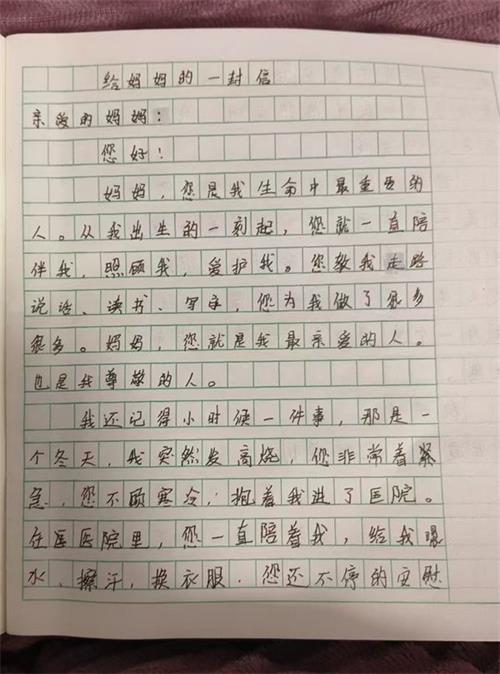 给妈妈的一封信
亲爱的妈妈：
您好！
妈妈，您是我生命中最重要的
人。从我出生的一刻起，您就一直陪
伴我，照顾我，爱护我。您教我走路
说话、读书、写字，您为我做了很多
很多。妈妈，您就是我最亲爱的人。
也是我尊敬的人。
我还记得小时候一件事，那是一
个冬天，我突然发高烧，您非常着紧
急，您不顾寒冷，抱着我进了医院。
在医医院里，您一直陪着我，给我喂
水、擦汗，换衣服．您还不停的安慰